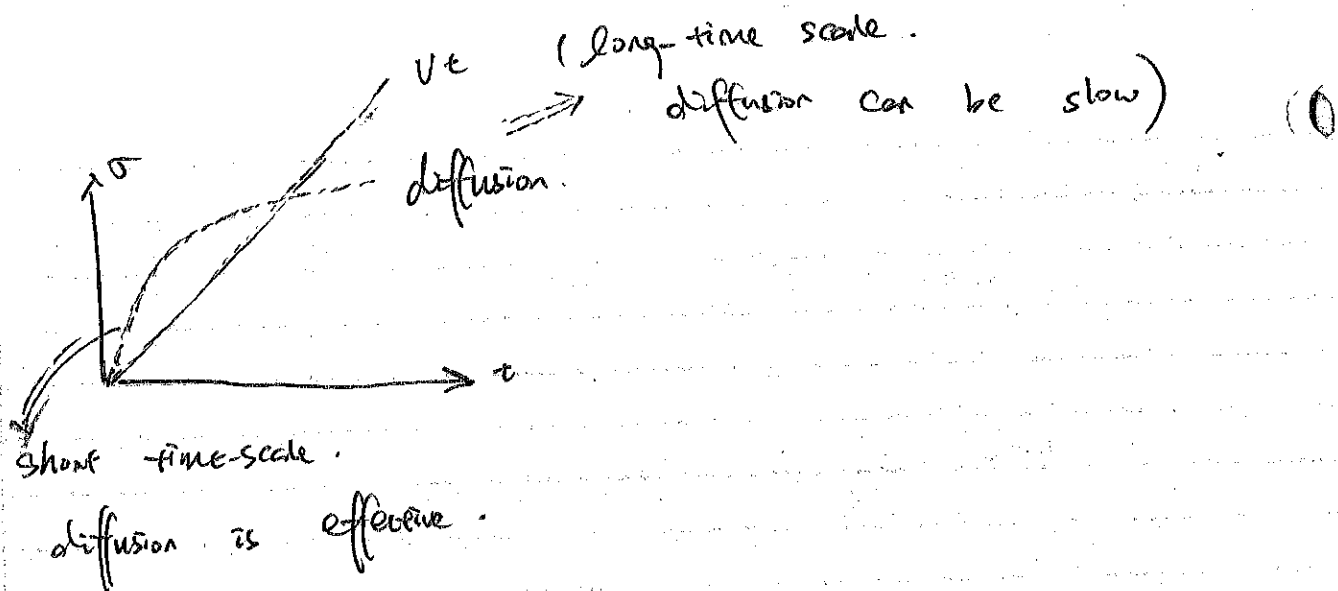 Vt (long-time scale.
diffusion can be slow)
σ
diffusion.
t
short time-scale.
diffusion is effective.